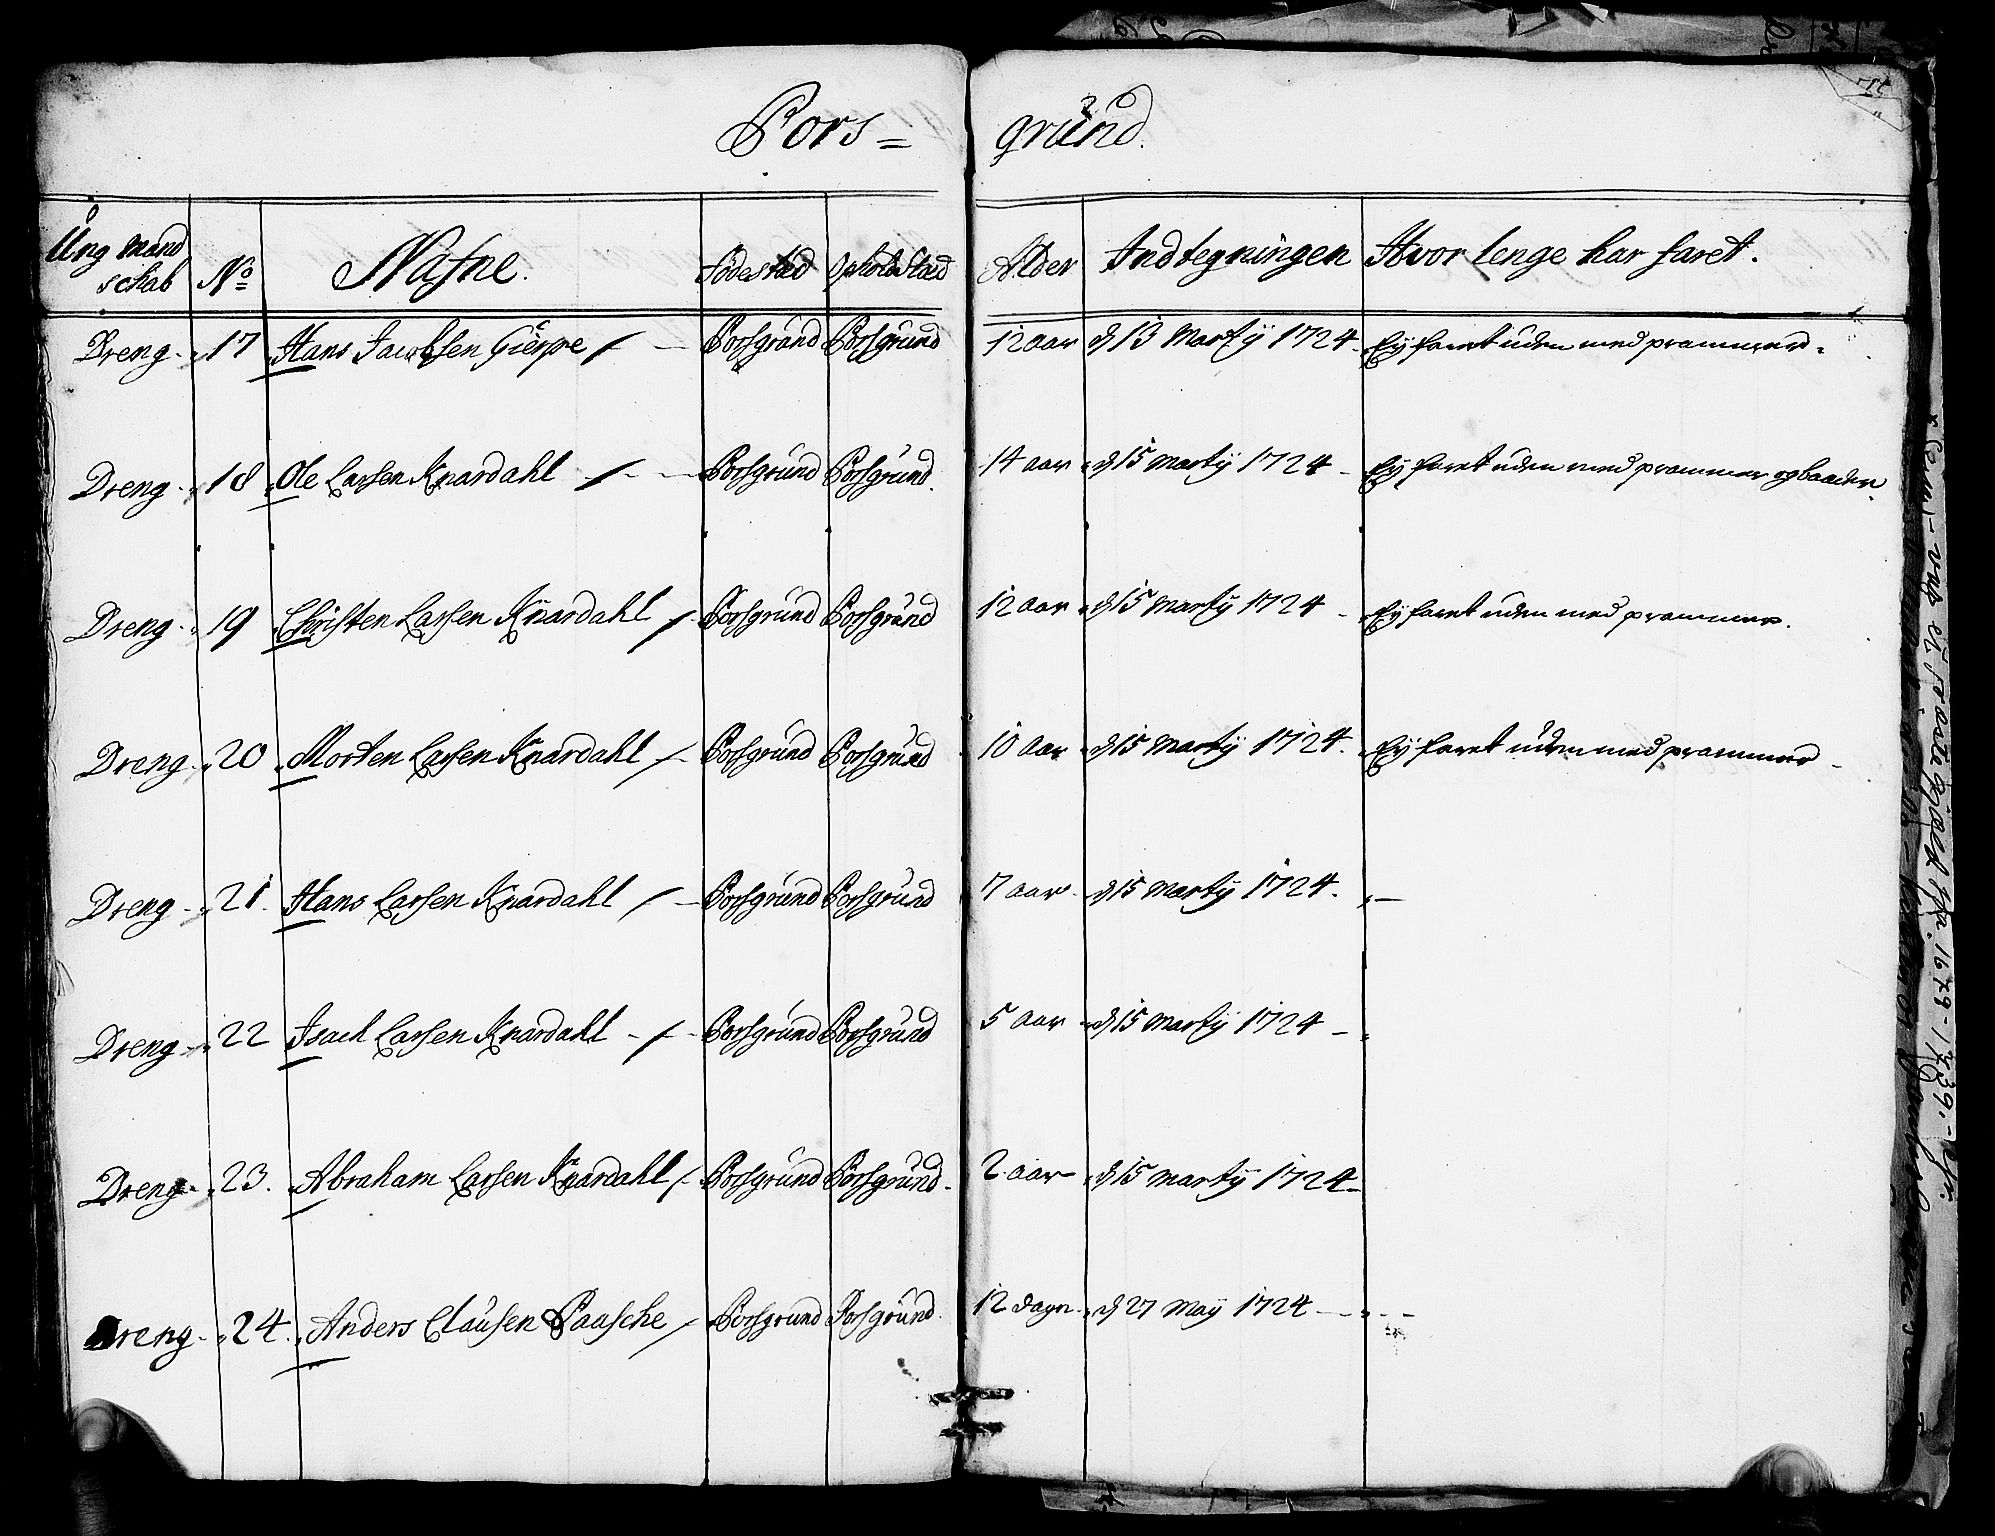 Pors= grund.
Ung mand schab No Nafne. Födestæd Opholdstæd Alder Indtegningen Hvor lenge har faret.
Dreng - 17 Hans Jacobsen Gierpe Porsgrund Porsgrund 12 aar d 13 Martÿ 1724 Eÿ faret uden med prammer.
Dreng - 18 Ole Larsen Knardahl Porsgrund Porsgrund. 14 aar d 15 Martÿ 1724 - Eÿ faret uden med prammer og baader.
Dreng - 19 Christen Larsen Knardahl Porsgrund Porsgrund 12 aar d 15 Martÿ 1724 - Eÿ faret uden med prammer.
Dreng - 20 Morten Larsen Knardahl Porsgrund Porsgrund 10 aar d 15 Martÿ 1724. Eÿ faret uden med prammer -
Dreng - 21. Hans Larsen Knardahl Porsgrund Porsgrund 7 aar d 15 Martÿ 1724. „ —
Dreng - 22 Isach Larsen Knardahl Porsgrund Porsgrund 5 aar d 15 Martÿ 1724 - „
Dreng - 23. Abraham Larsen Knardahl Porsgrund Porsgrund. 2 aar d 15 Martÿ 1724 -
Dreng - 24. Anders Clausen Paasche Porsgrund Porsgrund. 12 dage d 27 Maÿ 1724 - „ -